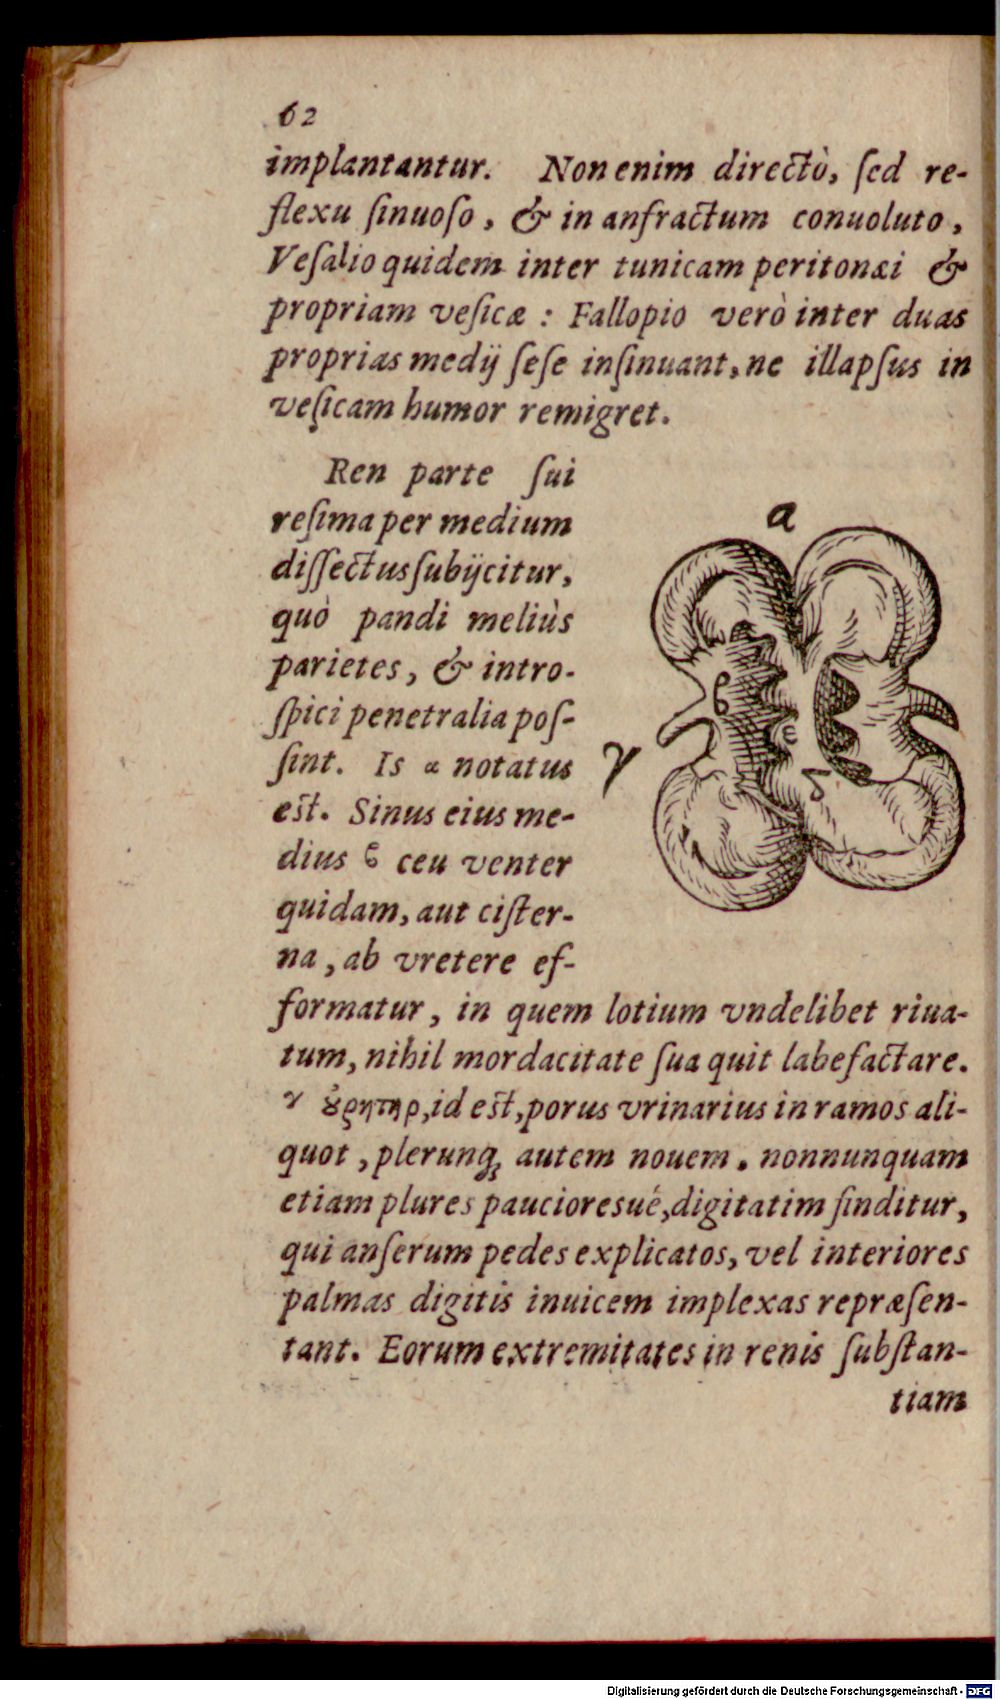 62
implantantur. Non enim directò, ſed re-
flexu ſinuoſo, & in anfractum conuoluto,
Veſalio quidem inter tunicam peritonæi &
propriam veſicæ : Fallopio verò inter duas
proprias medij ſeſe inſinuant, ne illapſus in
veſicam humor remigret.
Ren parte ſui
reſima per medium
diſſectus ſubijcitur,
quò pandi meliùs
parietes, & intro-
ſpici penetralia poſ-
ſint. Is α notatus
eſt. Sinus eius me-
dius ϐ ceu venter
quidam, aut ciſter-
na, ab vretere ef-
formatur, in quem lotium vndelibet riua-
tum, nihil mordacitate ſua quit labefactare.
γ ȣ̓ρητηρ, id eſt, porus vrinarius in ramos ali-
quot, plerunq; autem nouem, nonnunquam
etiam plures paucioresué, digitatim finditur,
qui anſerum pedes explicatos, vel interiores
palmas digitis inuicem implexas repræſen-
tant. Eorum extremitates in renis ſubſtan-
tiam
α
ϐ
γ
δ
ε
Digitalisierung gefördert durch die Deutsche Forschungsgemeinschaft - DFG